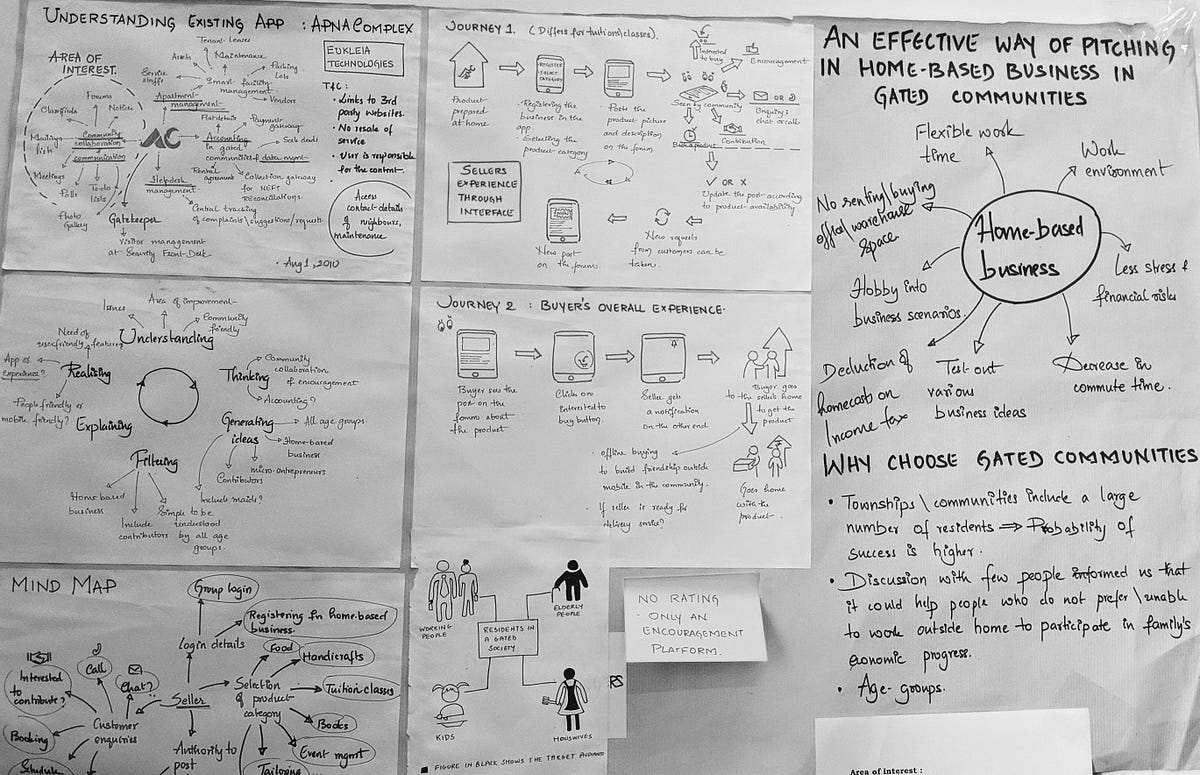 UNDERSTANDING EXISTING APP : APNACOMPLEX
AREA OF
INTEREST.
EUKLEIA
TECHNOLOGIES
Tenant Leases
Assets
Maintenance
Parking
Service
staffs
Smart facility
management
Vendors
Apartment
management
Forums
Classifieds
Notices
Community
collaboration
communication
Meetings
Polls
To-do
lists
Photo
Gallery
AC
Accounting
in gated
communities & data mgmt.
Payment
gateway
Rental
agreement
Collection gateway
for NEFT
reconciliations.
Helpdesk
management
Central tracking
of complaints\suggestions\requests
Gatekeeper
Visitor management
at Security Front-Desk
T&C :
• Links to 3rd
party websites.
• No resale of
service
• User is responsible
for the content.
Access
contact details
of neighbours,
maintenance
• Aug 1, 2010
JOURNEY 1. (Differs for tuitions\classes).
Product
prepared
at home
REGISTER
SELECT
CATEGORY
• Registering the
business in the
app.
• Selecting the
product category
Posts the
product picture
and description
on the forum
Interested
to buy
Encouragement
Seen by community
OR
Enquiry:
chat or call
Contribution
✓ OR X
Update the post according
to product availability
New requests
from customers can be
taken.
New post
on the forum.
SELLERS
EXPERIENCE
THROUGH
INTERFACE
AN EFFECTIVE WAY OF PITCHING
IN HOME-BASED BUSINESS IN
GATED COMMUNITIES
Home-based
business
Flexible work
time
Work
environment
No renting\buying
office\warehouse
space
Less stress &
financial risks
Hobby into
business scenarios.
Deduction of
homecash on
Income tax
Test out
various
business ideas
Decrease in
commute time.
Issues
Area of improvement
Community
friendly
Understanding
Need of
userfriendly features
Realising
App or
experience?
People friendly or
mobile friendly?
Explaining
Thinking
Community
collaboration
of encouragement
Accounting?
Generating
ideas
All age groups.
Home-based
business
micro-entrepreneurs
Contributors
Include maids?
Filtering
Home based
business
Include
contributors
Simple to be
understood
by all age
groups.
JOURNEY 2 : BUYER'S OVERALL EXPERIENCE.
Buyer sees the
post on the
forum about
the product
Clicks on
interested to
buy button.
Seller gets
a notification
on the other end.
Buyer goes
to the seller's home
to get the
product
Goes home
with the
product.
• offline buying
to build friendship outside
mobile in the community.
• If seller is ready for
delivery service?
WHY CHOOSE GATED COMMUNITIES
• Townships\communities include a large
number of residents ⇒ Probability of
success is higher.
• Discussion with few people informed us that
it could help people who do not prefer\unable
to work outside home to participate in family's
economic progress.
• Age-groups.
MIND MAP
Group login
Login details
Registering for home-based
business.
Food
Handicrafts
Tuition classes
Books
Event mgmt
Tailoring
Selection
of product
category
Seller
Authority to
post
Customer
enquiries
Call
Chat?
Interested
to contribute?
Booking
Schedule
WORKING
PEOPLE
ELDERLY
PEOPLE
RESIDENTS IN
A GATED
SOCIETY
KIDS
HOUSWIVES
■ FIGURE IN BLACK SHOWS THE TARGET AUDIENCE
NO RATING
• ONLY AN
ENCOURAGEMENT
PLATFORM.
RS
Area of interest :